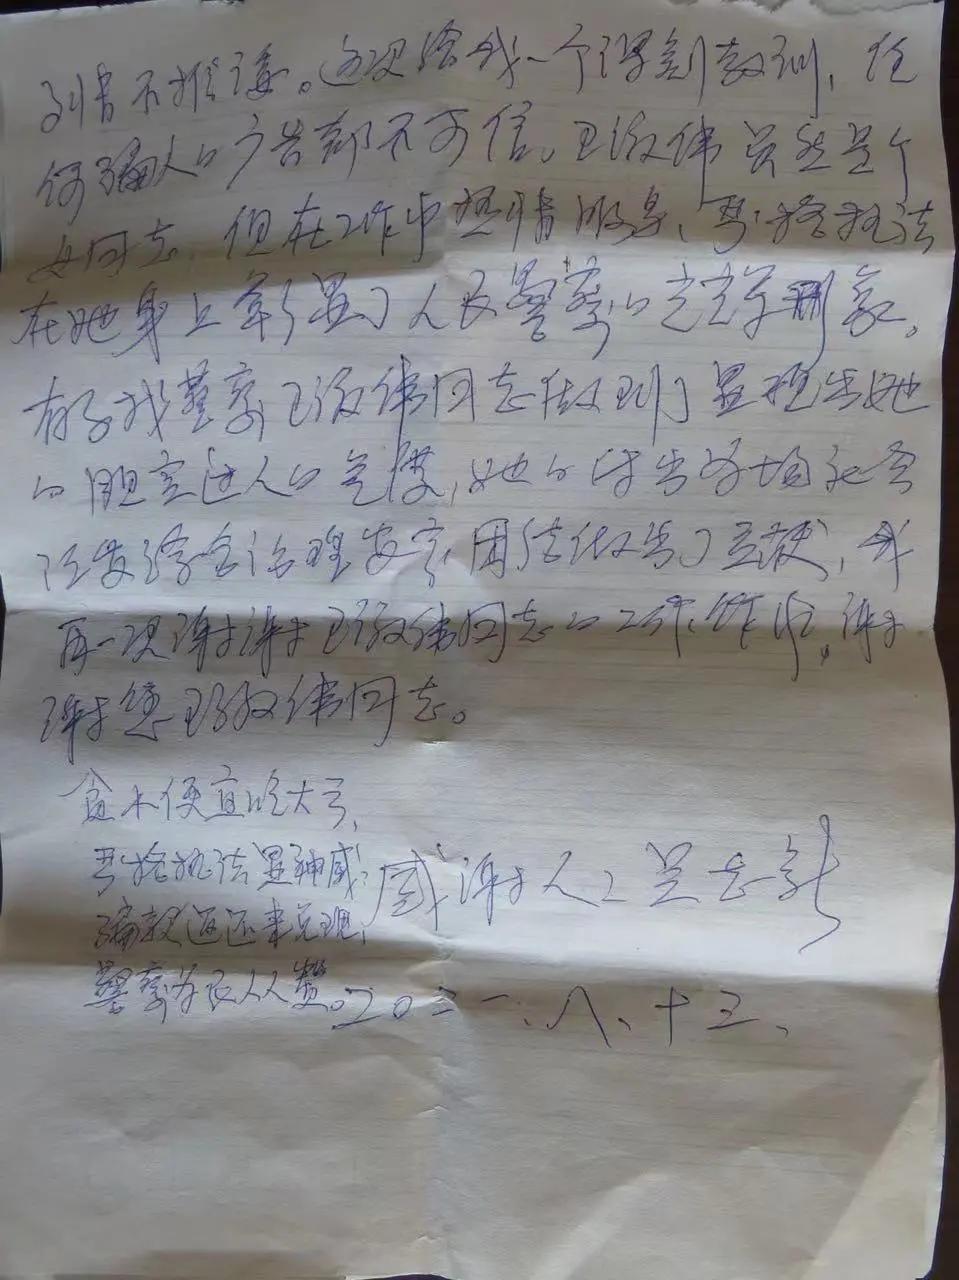 不推诿。这次给我一个深刻教训，任
何骗人的广告都不可信。王淑伟虽然是个
女同志，但在工作中热情服务、严格执法
在她身上彰显了人民警察的光辉形象。
警察王淑伟同志做到了显现出她
的胆
综合治理 出了贡献，我
再一次谢谢王淑伟同志的工作作风，谢
谢您王淑伟同志。
贪小便宜吃大亏，
严格执法显神威；
骗款返还来兑现，
警察为民人人赞。
感谢人：吴志新
二〇二一、八、十三、